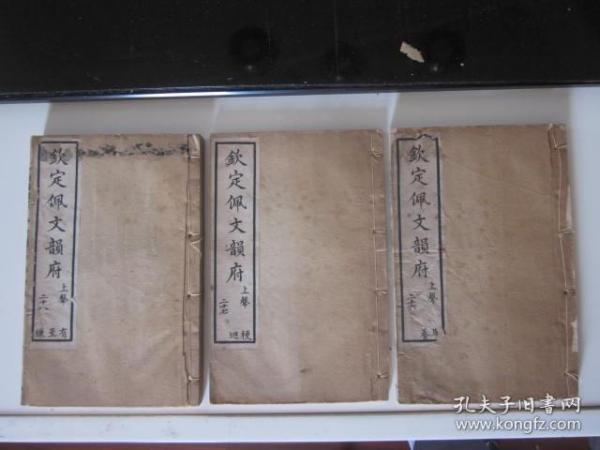 欽定佩文韻府
上聲
二十八
有
至
欽定佩文韻府
上聲
二十七
梗
迥
欽定佩文韻府
上聲
二十六
馬
養
孔夫子旧書网
www.kongfz.com